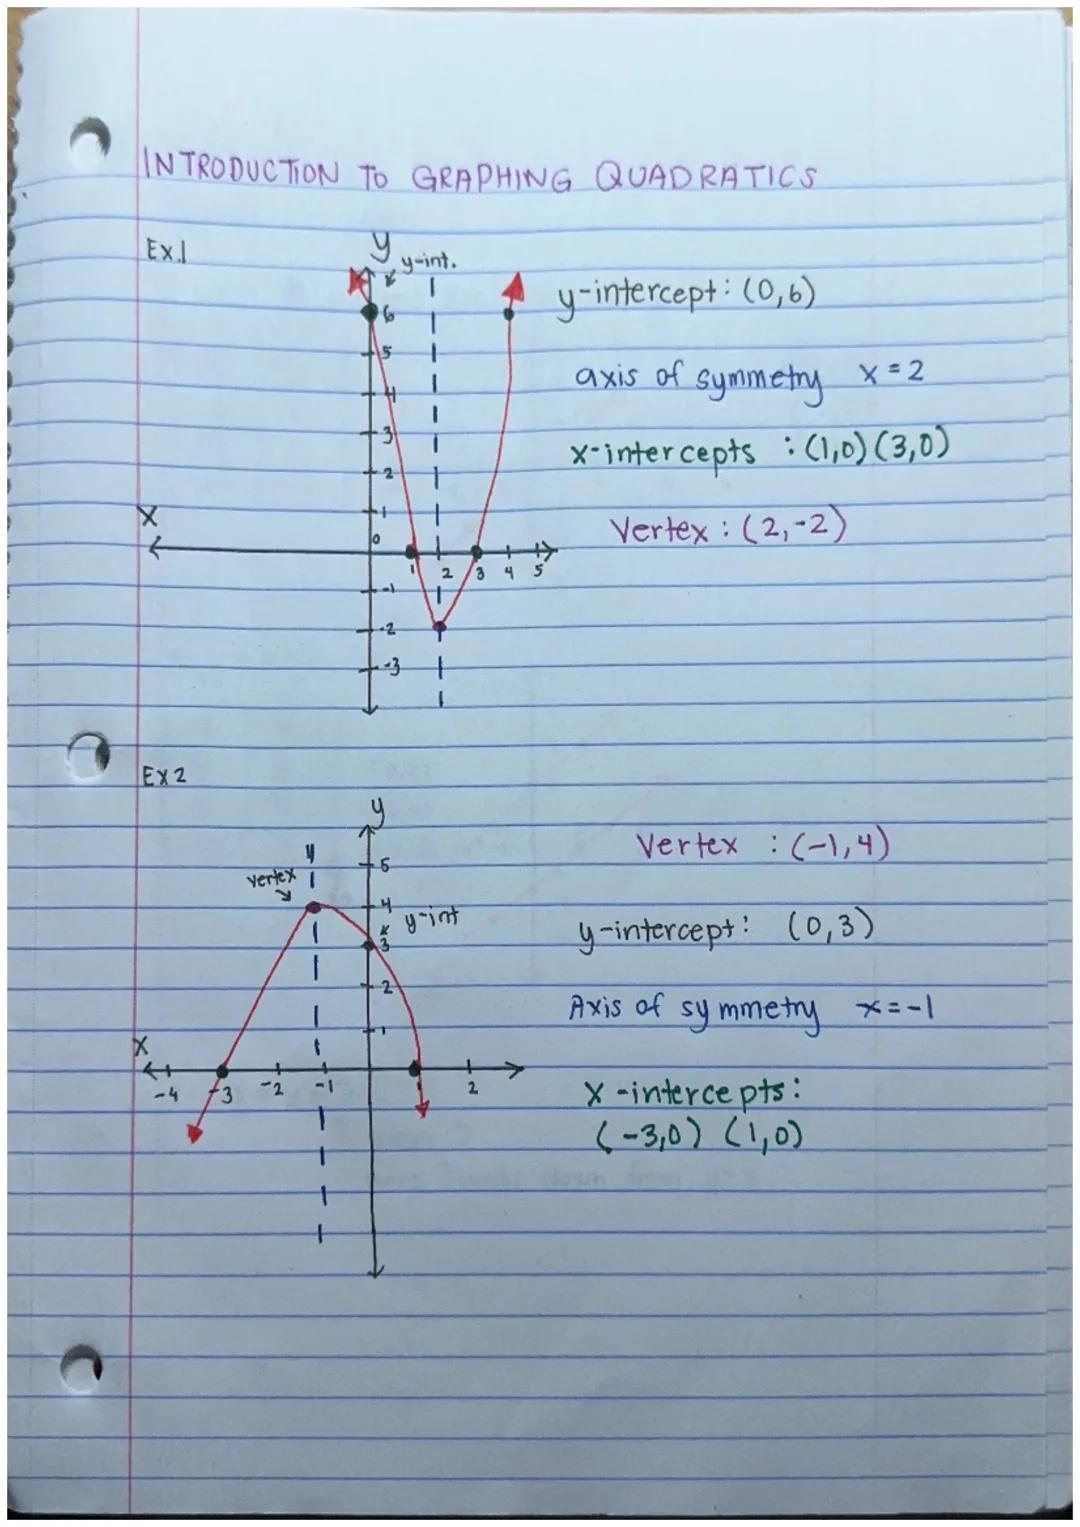 INTRODUCTION TO GRAPHING QUADRATICS
Ex.1
y
y-int.
y-intercept: (0,6)
6
5
axis of symmetry x=2
4
3
x-intercepts : (1,0) (3,0)
2
x
1
Vertex : (2,-2)
0
1 2 3 4 5
-1
-2
-3
Ex 2
y
Vertex : (-1,4)
5
vertex
4
y-int
y-intercept: (0,3)
3
2
Axis of symmetry x=-1
1
x
-4 -3 -2 -1 1 2
x-intercepts:
(-3,0) (1,0)